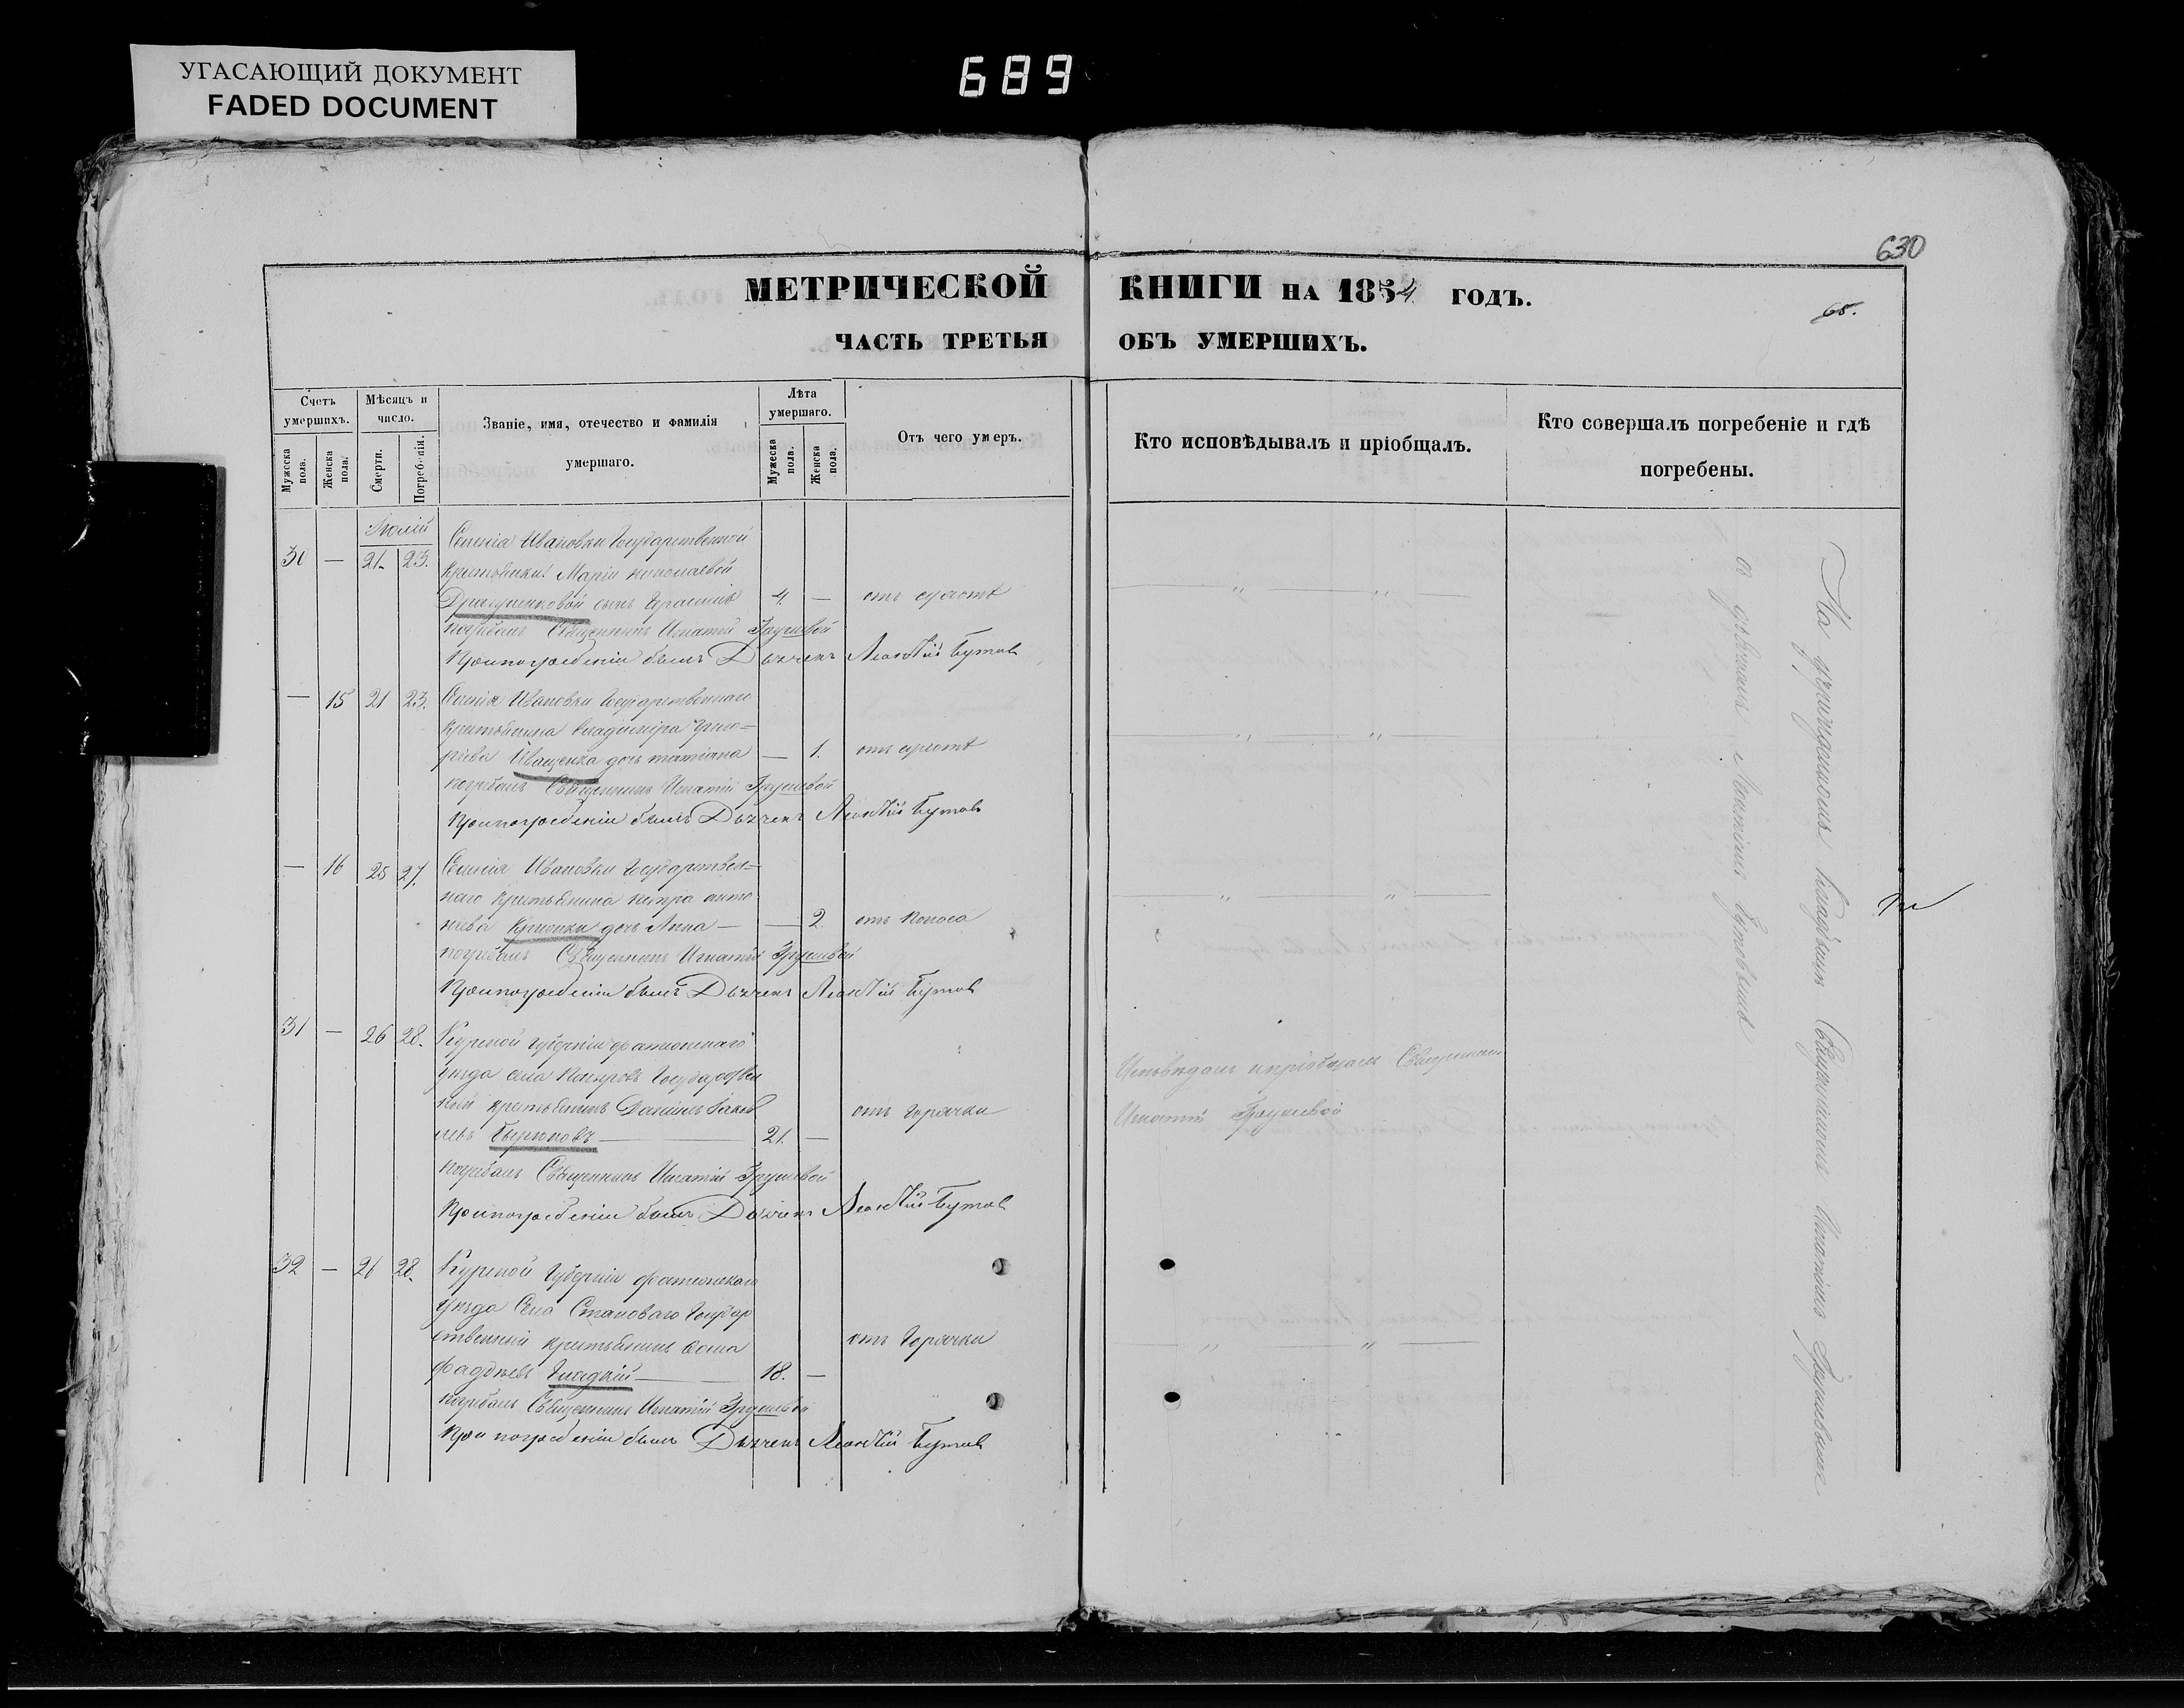 УГАСАЮЩИЙ ДОКУМЕНТ
FADED DOCUMENT
689
630
МЕТРИЧЕСКОЙ КНИГИ НА 1854 ГОДЪ.
65.
ЧАСТЬ ТРЕТЬЯ ОБЪ УМЕРШИХЪ.
Счетъ умершихъ.
Мужеска пола.
Женска пола.
Мѣсяцъ и число.
Смерти.
Погребенія.
Званіе, имя, отечество и фамилія умершаго.
Лѣта умершаго.
Мужеска пола.
Женска пола.
Отъ чего умеръ.
Кто исповѣдывалъ и пріобщалъ.
Кто совершалъ погребеніе и гдѣ погребены.
Іюлій
30 — 21. 23. Селенія Ивановки Государственной
крестьянки Маріи Николаевой
Драгушенковой сынъ Герасимъ 4. —
погребалъ Священникъ Игнатій Грушевой
При погребеніи былъ Дьячекъ Леонтій Бутовъ
— 15 21 23. Селенія Ивановки Государственнаго
крестьянина Владиміра Григо=
рьева Иващенка дочь Татіана — 1.
погребалъ Священникъ Игнатій Грушевой
При погребеніи былъ Дьячекъ Леонтій Бутовъ
— 16 25 27. Селенія Ивановки Государствен=
наго крестьянина Петра Анто
ніева дочь Анна — — 2. отъ поноса
погребалъ Священникъ Игнатій Грушевой
При погребеніи былъ Дьячекъ Леонтій Бутовъ
31 — 26 28. Курской Губерніи Фатежскаго
уезда села Государствен
ный крестьянинъ Даніилъ Яков отъ горячки
левъ 21. —
погребалъ Священникъ Игнатій Грушевой
При погребеніи былъ Дьячекъ Леонтій Бутовъ
Исповѣдалъ и пріобщалъ Священникъ
Игнатій Грушевой
32 — 26 28. Курской Губерніи Фатежскаго
уезда Села Становаго Государ
ственный крестьянинъ Фома отъ горячки
Фадѣевъ Гладкій 18. —
погребалъ Священникъ Игнатій Грушевой
При погребеніи былъ Дьячекъ Леонтій Бутовъ
На кладбищѣ Священникомъ Игнатіемъ Грушевымъ
съ дьячкомъ Леонтіемъ Бутовымъ